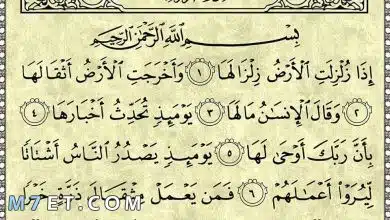 بِسْمِ اللَّهِ الرَّحْمَٰنِ الرَّحِيمِ
إِذَا زُلْزِلَتِ ٱلْأَرْضُ زِلْزَالَهَا ١ وَأَخْرَجَتِ ٱلْأَرْضُ أَثْقَالَهَا
٢ وَقَالَ ٱلْإِنسَٰنُ مَا لَهَا ٣ يَوْمَئِذٍ تُحَدِّثُ أَخْبَارَهَا ٤
بِأَنَّ رَبَّكَ أَوْحَىٰ لَهَا ٥ يَوْمَئِذٍ يَصْدُرُ ٱلنَّاسُ أَشْتَاتًا
لِّيُرَوْا۟ أَعْمَٰلَهُمْ ٦ فَمَن يَعْمَلْ مِثْقَالَ ذَرَّةٍ خَيْرًا
M7ET.COM